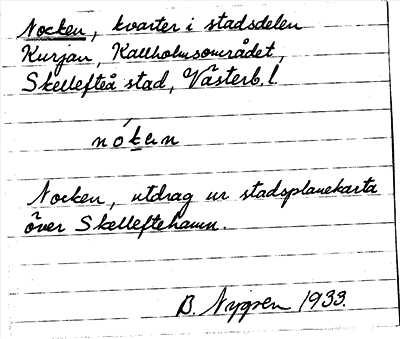 Nocken, kvarter i stadsdelen
Kurjan, Kallholmsområdet,
Skellefteå stad, Västerb. l.
nóken
Nocken, utdrag ur stadsplanekarta
över Skelleftehamn.
B. Nygren 1933.